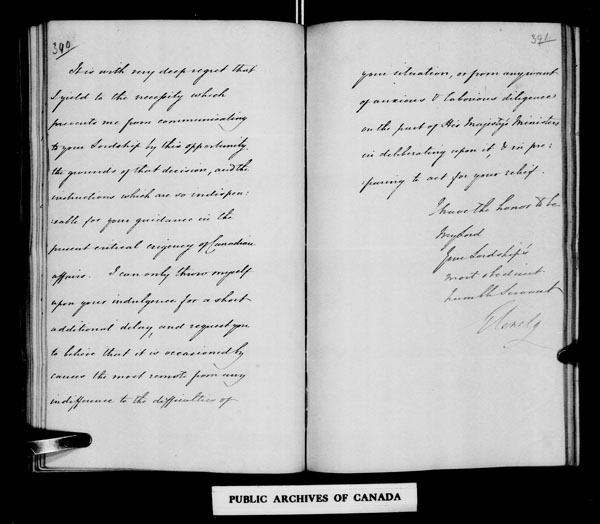 390
It is with very deep regret that
I yield to the necessity which
prevents me from communicating
to your Lordship by this opportunity,
the grounds of that decision, and the
instructions which are so indispen:
sable for your guidance in the
present critical exigency of Canadian
affairs. I can only throw myself
upon your indulgence for a short
additional delay, and request you
to believe that it is occasioned by
causes the most remote from any
indifference to the difficulties of
391
your situation, or from any want
of anxious & laborious diligence
on the part of His Majesty's Ministers
in deliberating upon it, & in pre:
paring to act for your relief.
I have the honor to be
My Lord
Your Lordship's
most obedient
humble Servant
Glenelg
PUBLIC ARCHIVES OF CANADA